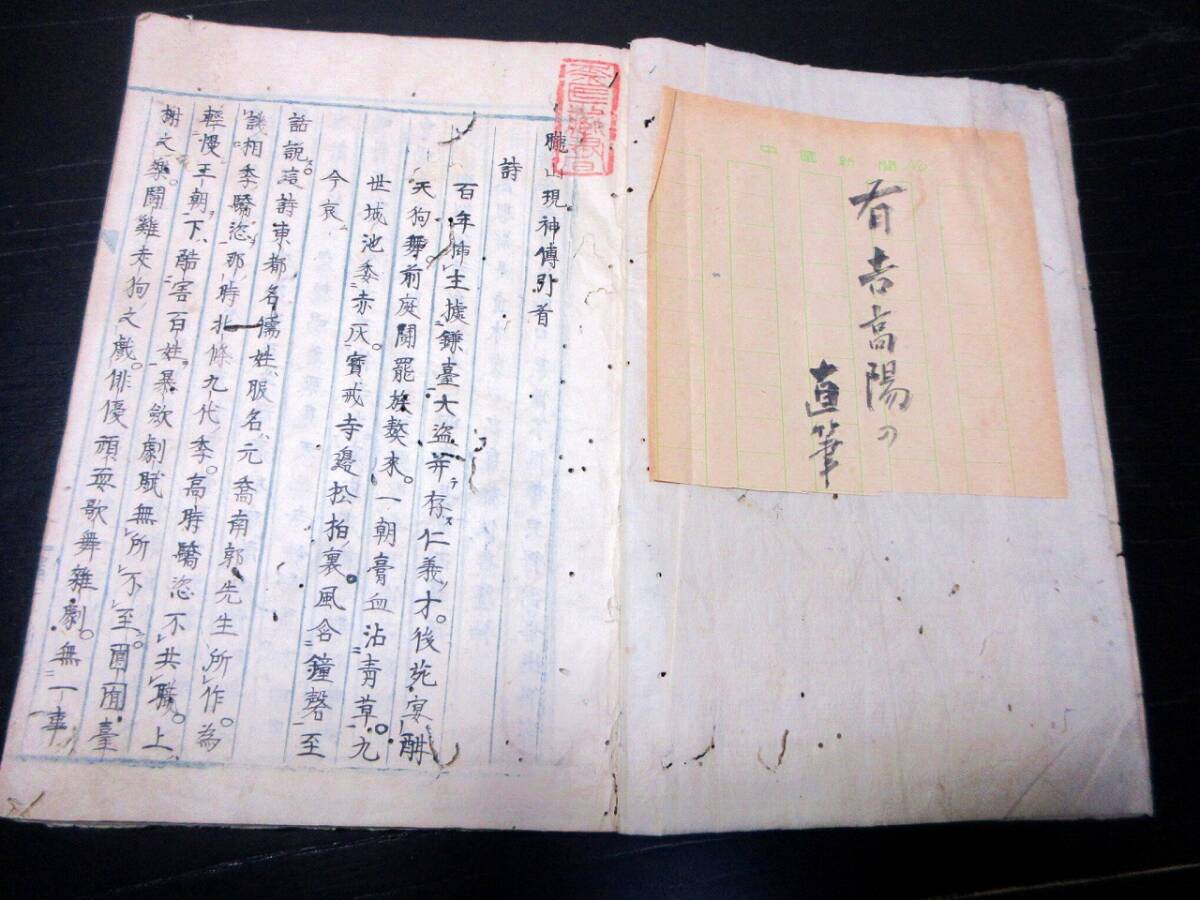 中國新聞
有吉高陽の
直筆
朧山現神傳引首
詩
百年 主據鎌臺大盜并存仁義才。後苑宴酣
天狗舞。前庭鬪罷族獒来。一朝膏血沾青草。九
世城池委赤灰。寶戒寺邊松栢裏。風含鐘磬至
今哀
話說。這詩東都名儒姓服名元喬南郭先生所作。為
譏相季驕恣。那時北條九代季。高時驕恣不共職。上
輕慢王朝。下酷害百姓。暴歛劇賦無所不至。園囿臺
榭之樂。鬪雞走狗之戲。俳優頑耍歌舞雜劇。無一事